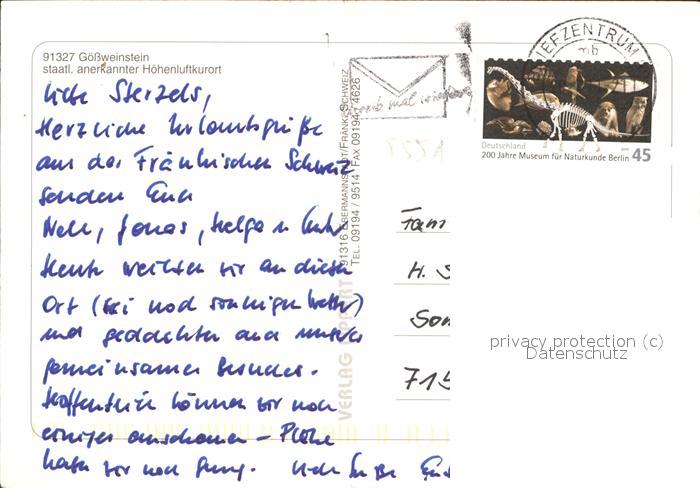 91327 Gößweinstein
staatl. anerkannter Höhenluftkurort
Liebe Sterzels,
Herzliche Urlaubsgrüße
aus der Fränkischen Schweiz
senden Euch
Nele, Jonas, Helga u.
Heute weilten wir an diesem
Ort (bei noch sonnigem Wetter)
und gedachten auch unseres
gemeinsamen Besuches.
Hoffentlich können wir noch
einiges anschauen – Pläne
haben wir noch genug. Liebe Grüße
VERLAG
91316 EBERMANNSTADT/FRÄNK. SCHWEIZ
TEL. 09194 / 9514 FAX 09194 / 4626
Schreib mal wieder
BRIEFZENTRUM
mb
Deutschland
200 Jahre Museum für Naturkunde Berlin 45
Fam
H. S
Son
715
privacy protection (c)
Datenschutz